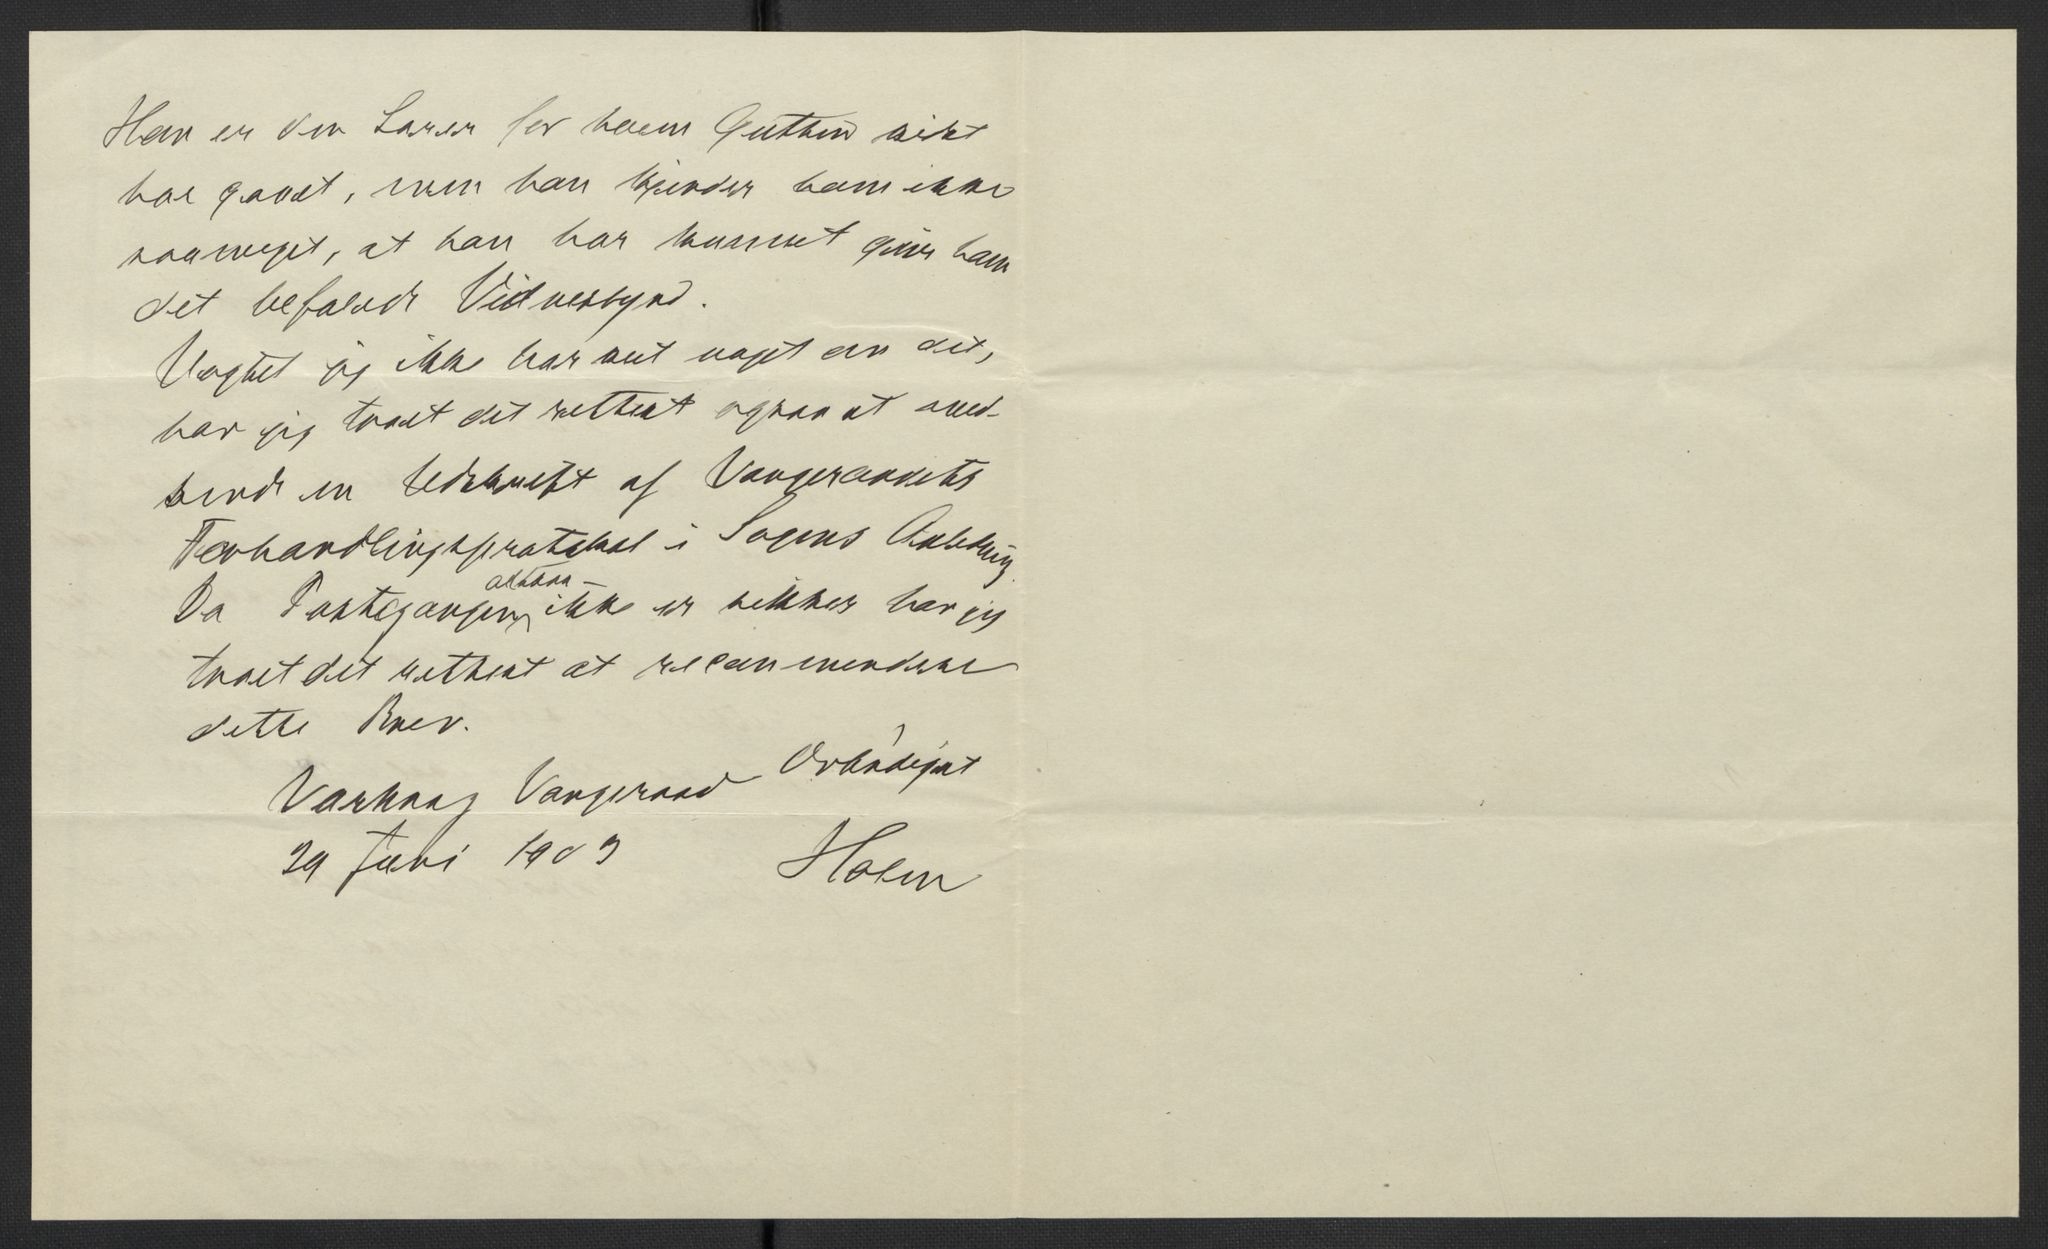 Han er den Lærer for hvem Gutten sidst
har gaaet, men han kjender ham ikke
saa meget, at han har kunnet give ham
det befalede Vidnesbyrd.
Uagtet jeg ikke har seet noget om det,
har jeg troet det rettest ogsaa at med-
sende en Udskrift af Vergeraadets
Forhandlingsprotokol i Sagens Anledning.
Da Postgangen altsaa ikke er sikker har jeg
troet det rettest at recommendere
dette Brev.
Varhaug Vergeraad Ærbødigst
29 Juni 1903 Holm